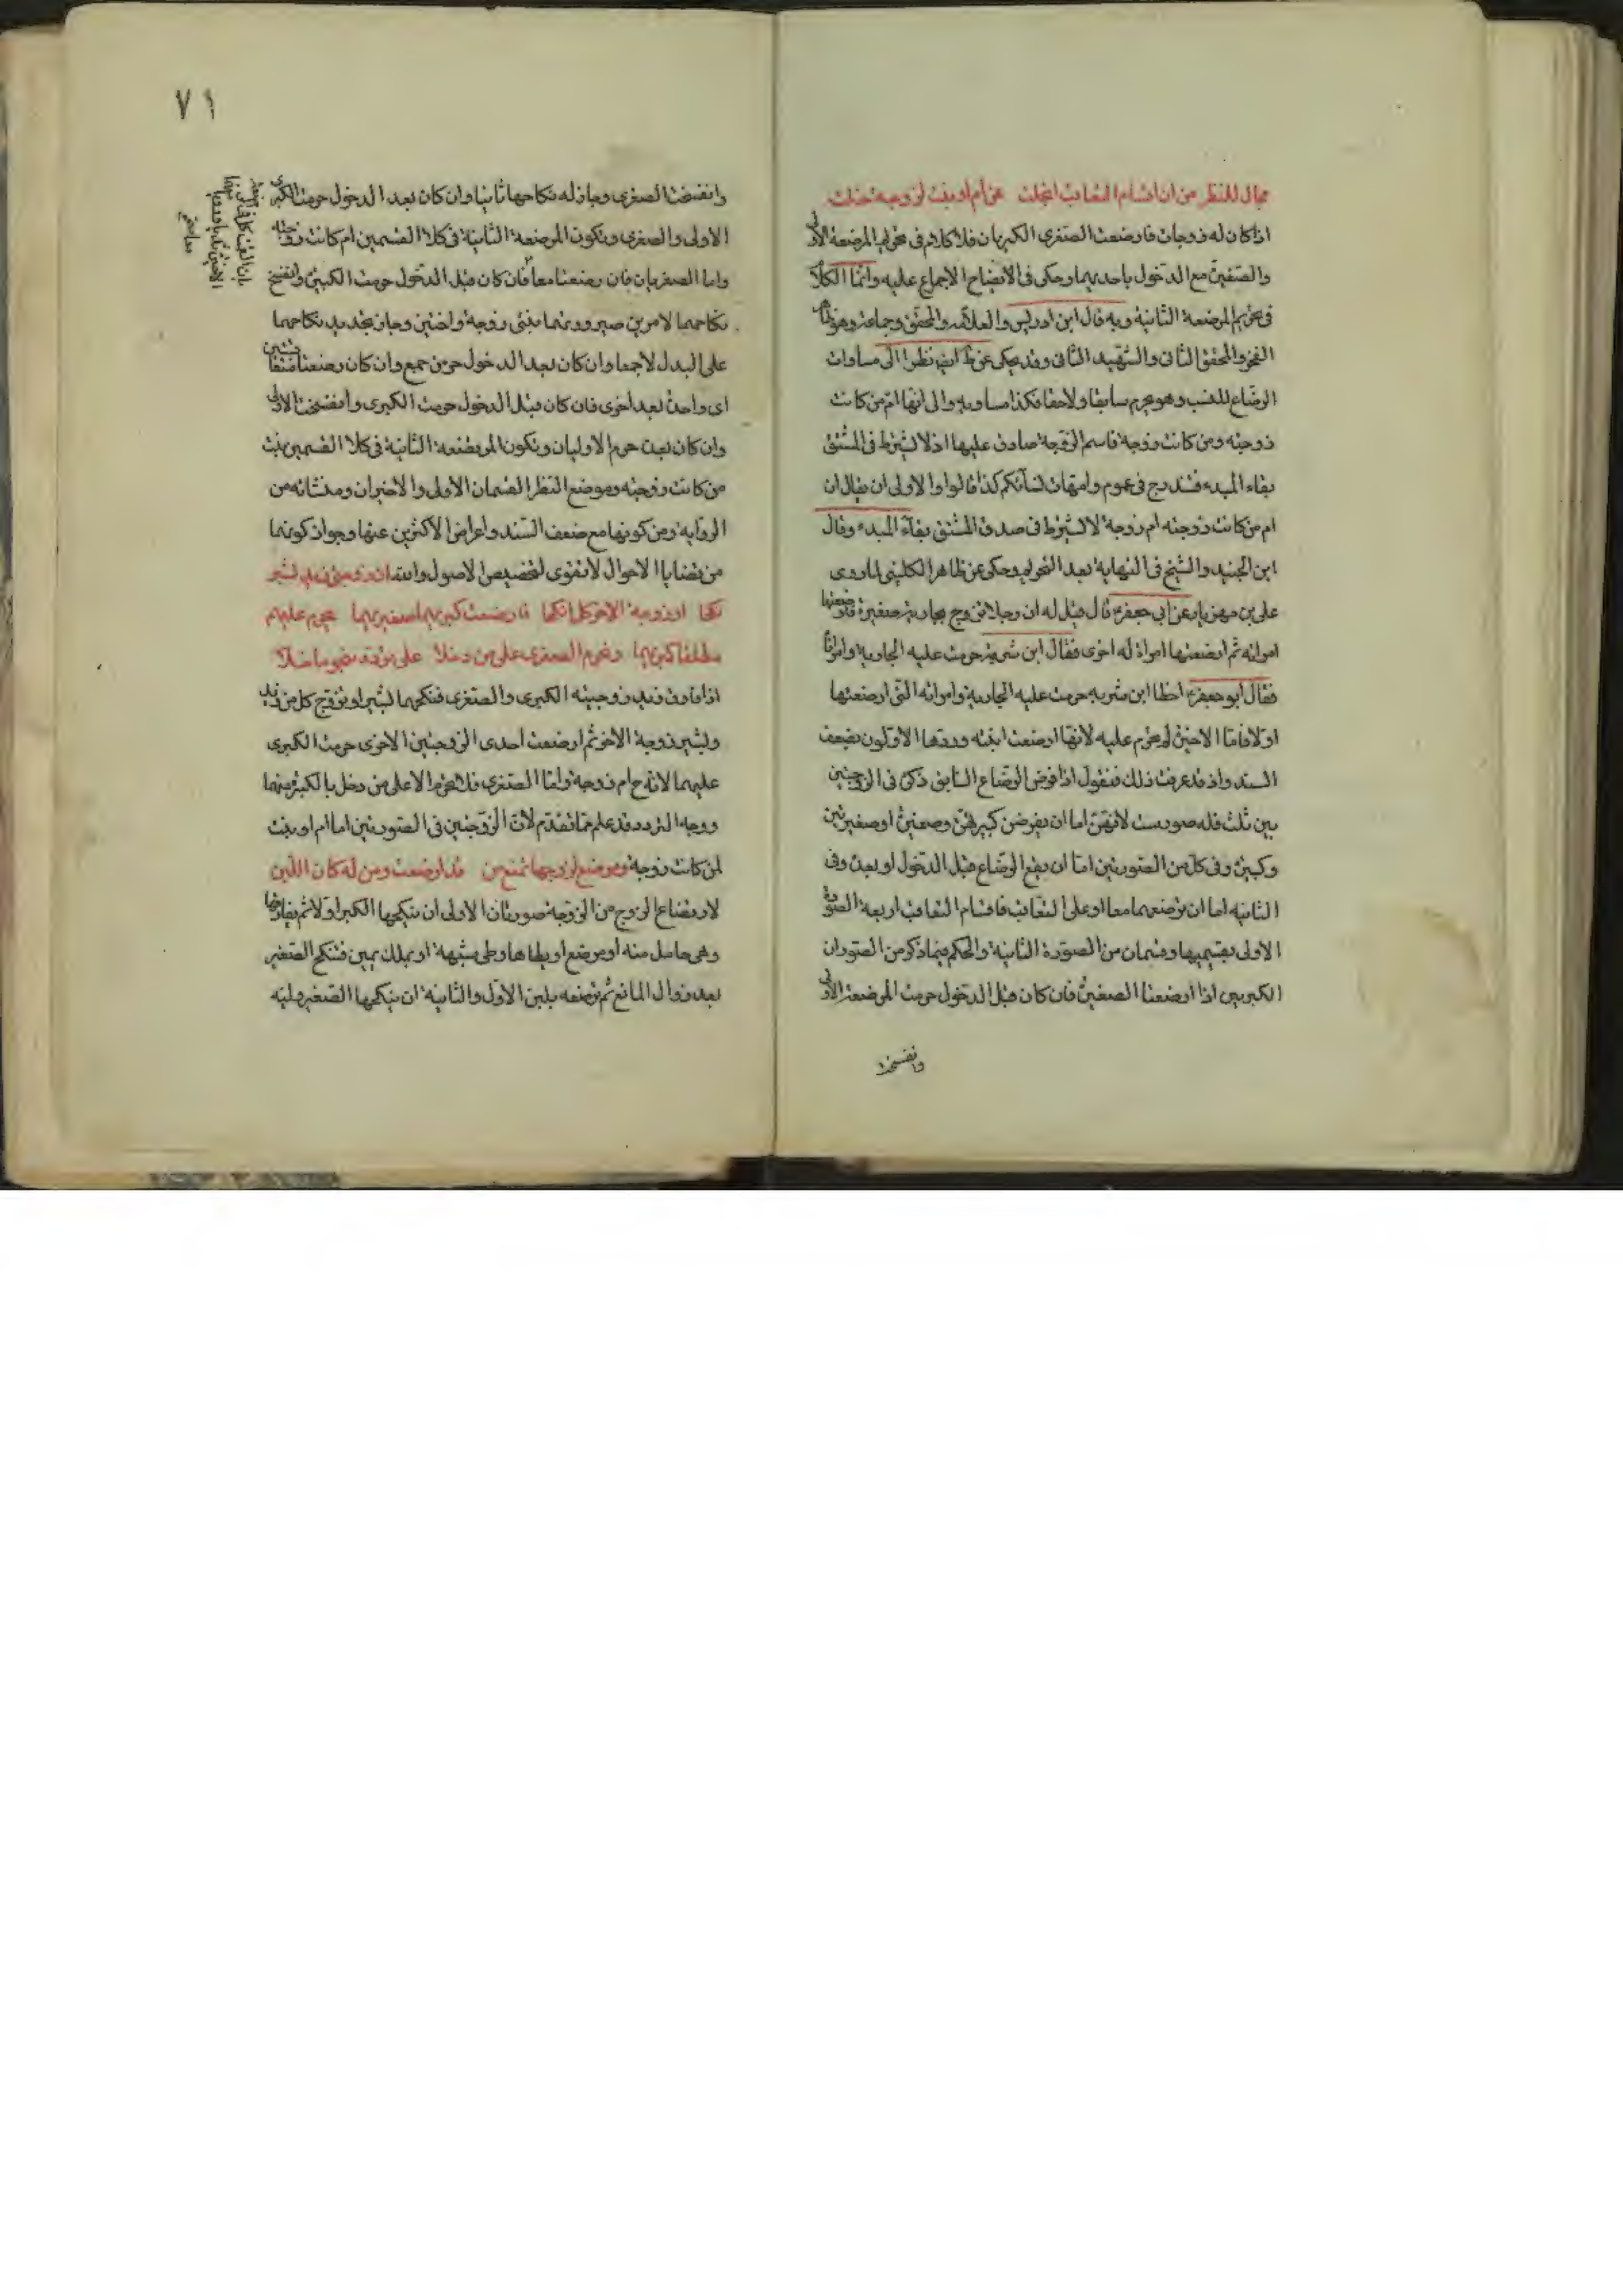 مجال للنظر من ان اقسام التعاقب انجلت عن أم او بنت لزوجة خلت
اذا كان له زوجات فارضعت الصغرى الكبريان فلا كلام فى تحريم المرضعة الأولى
والصغيرة مع الدخول باحديهما وحكى فى الايضاح الاجماع عليه وانما الكلام
فى تحريم المرضعة الثانية وبه قال ابن ادريس والعلامة والمحقق وجماعة وهو
الفخر والمحقق الثانى والشهيد الثانى وقد يحكى عن ط ايض نظرا الى مساوات
الرضاع للنسب وهو يحرم سابقا ولاحقا فكذا مساويه والى انها ام من كانت
زوجته ومن كانت زوجة فاسم الزوجة صادق عليها اذ لا يشترط فى المشتق
بقاء المبدء فتندرج فى عموم وامهات نسائكم كذا قالوا والاولى ان يقال ان
ام من كانت زوجته ام زوجة لا لا يشترط فى صدق المشتق بقاء المبدء وقال
ابن الجنيد والشيخ فى النهاية بعد التحريم وحكى عن ظاهر الكلينى لما روى
على بن مهزيار عن ابى جعفر ع قال قيل له ان رجلا تزوج بجارية صغيرة فارضعتها
امراته ثم ارضعتها امراة له اخرى فقال ابن شبرمة حرمت عليه الجارية وامراتاه
فقال ابو جعفر ع اخطا ابن شبرمه حرمت عليه الجارية وامراته التى ارضعتها
اولا فاما الاخيرة لم يحرم عليه لانها ارضعت ابنته وردها الاولون بضعف
السند واذ قد عرفت ذلك فنقول اذا فرض الرضاع السابق ذكره فى الزوجتين
بين ثلث فله صور ست لانهن اما ان يفرضن كبيرتين وصغيرة او صغيرتين
وكبيرة وفى كل من الصورتين اما ان يقع الرضاع قبل الدخول او بعده وفى
الثانيه اما ان ترضعهما معا او على التعاقب فاقسام التعاقب اربعة الصورة
الاولى بقسميها وقسمان من الصورة الثانية والحكم فيما ذكر من الصور ان
الكبريين اذا ارضعتا الصغيرة فان كان قبل الدخول حرمت المرضعة الاولى
وانفسخت
٧١
وانفسخت الصغرى وجاز له نكاحها ثانيا وان كان بعد الدخول حرمت الكبرى
الاولى والصغرى وتكون المرضعة الثانية فى كلا القسمين ام كانت زوجته
واما الصغريان فان رضعتا معا فان كان قبل الدخول حرمت الكبيرة وانفسخ
نكاحهما لامرين صيرورتهما بنتى زوجة واختين وجاز تجديد نكاحهما
على البدل لا جمعا وان كان بعد الدخول حرمن جمع وان كان رضعتا متعاقبتين
اى واحدة بعد اخرى فان كان قبل الدخول حرمت الكبرى وانفسخت الاولى
وان كان بعده حرم الاوليان وتكون المرتضعة الثانية فى كلا القسمين بنت
من كانت زوجته وموضع النظر القسمان الاولى والاخيران ومنشائه من
الرواية ومن كونها مع ضعف السند واعراض الاكثرين عنها وجواز كونها
من قضايا الاحوال لا تقوى لتخصيص الاصول والله
نكحا او زوجة الاخر كل انكحا فارضعت كبريهما صغيريهما يحرم عليهم
مطلقا كبريهما وتحرم الصغرى على من دخلا على
اذا فارق زيد زوجتيه الكبرى والصغرى فنكحهما بشير او تزوج كل من زيد
وبشير زوجة الاخر ثم ارضعت احدى الزوجتين الاخرى حرمت الكبرى
عليهما لانه ح ام زوجة واما الصغرى فلا تحرم الا على من دخل بالكبرى منهما
ووجه التردد قد علم مما تقدم لان الزوجتين فى الصورتين اما ام او بنت
لمن كانت زوجة ومرضع لزوجها تمنع من قد ارضعت ومن له كان اللبن
لارتضاع الزوج من الزوجة صورتان الاولى ان ينكحها الكبير اولا ثم يفارقها
وهى حامل منه او مرضع او يطاها وطى شبهة او بملك يمين فتنكح الصغير
بعد زوال المانع ثم ترضعه بلبن الاول والثانية ان ينكحها الصغير وليه